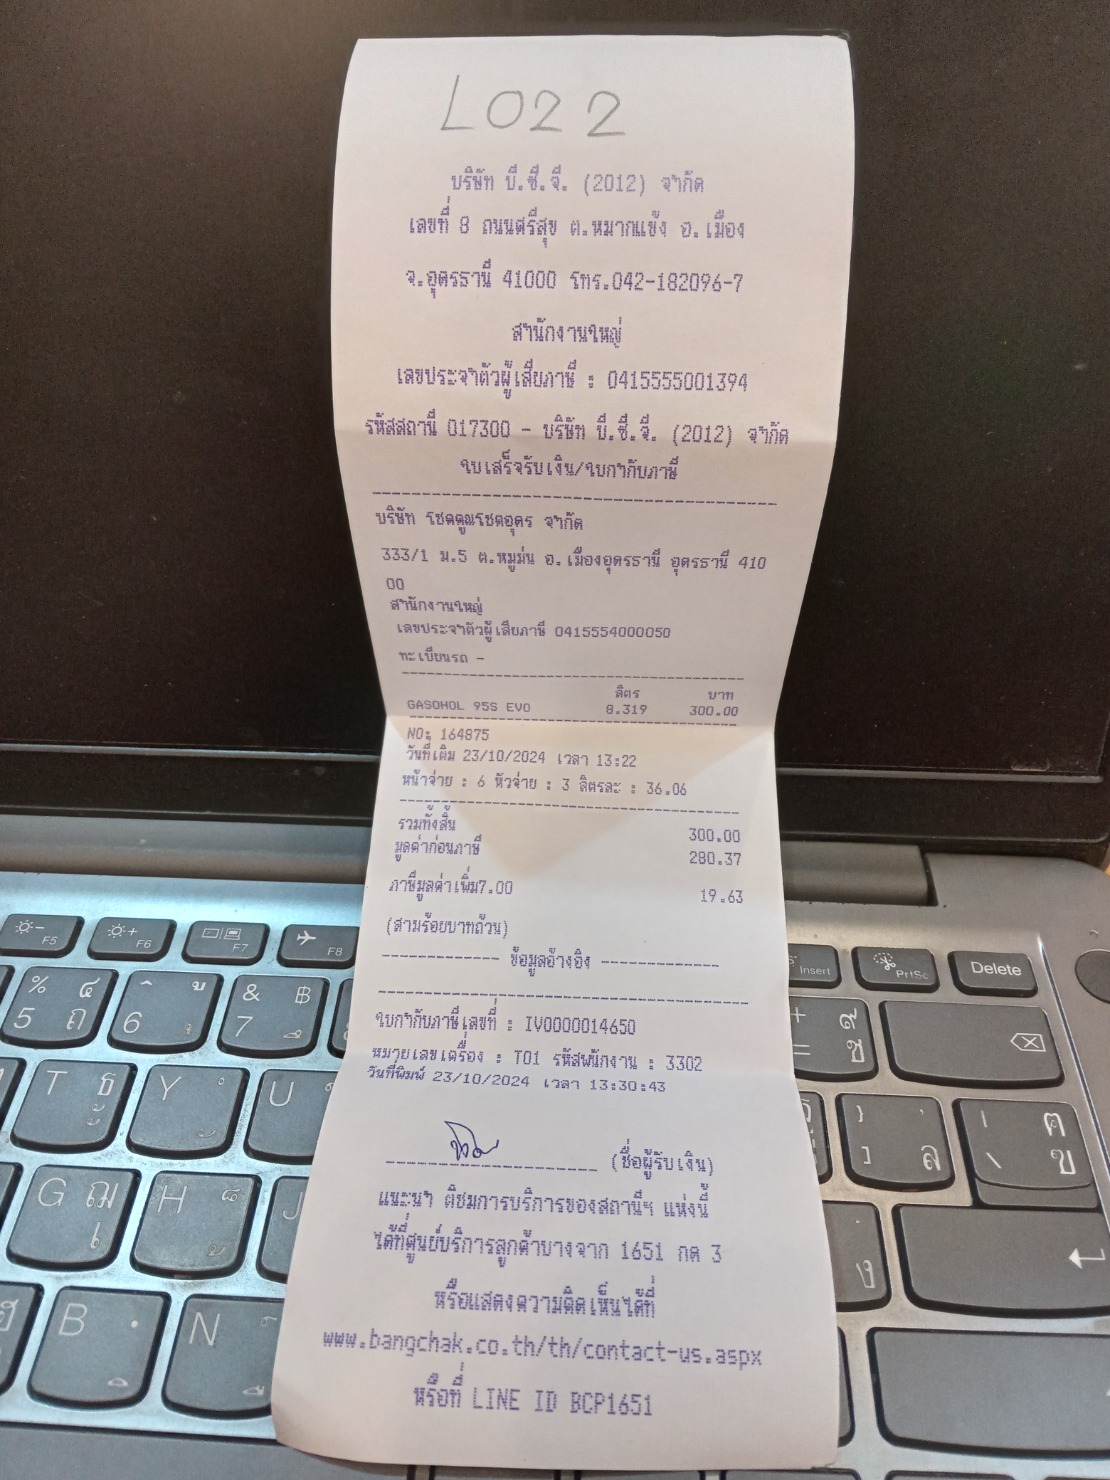 L022
บริษัท บี.ซี.จี. (2012) จำกัด
เลขที่ 8 ถนนศรีสุข ต.หมากแข้ง อ.เมือง
จ.อุดรธานี 41000 โทร.042-182096-7
สำนักงานใหญ่
เลขประจำตัวผู้เสียภาษี : 0415555001394
รหัสสถานี 017300 - บริษัท บี.ซี.จี. (2012) จำกัด
ใบเสร็จรับเงิน/ใบกำกับภาษี
บริษัท โชคคูณโชคอุดร จำกัด
333/1 ม.5 ต.หมูม่น อ.เมืองอุดรธานี อุดรธานี 410
00
สำนักงานใหญ่
เลขประจำตัวผู้เสียภาษี 0415554000050
ทะเบียนรถ -
ลิตร บาท
GASOHOL 95S EVO 8.319 300.00
NO: 164875
วันที่เติม 23/10/2024 เวลา 13:22
หน้าจ่าย : 6 หัวจ่าย : 3 ลิตรละ : 36.06
รวมทั้งสิ้น 300.00
มูลค่าก่อนภาษี 280.37
ภาษีมูลค่าเพิ่ม7.00 19.63
(สามร้อยบาทถ้วน)
------------ ข้อมูลอ้างอิง ------------
ใบกำกับภาษีเลขที่ : IV0000014650
หมายเลขเครื่อง : T01 รหัสพนักงาน : 3302
วันที่พิมพ์ 23/10/2024 เวลา 13:30:43
(ชื่อผู้รับเงิน)
แนะนำ ติชมการบริการของสถานีฯ แห่งนี้
ได้ที่ศูนย์บริการลูกค้าบางจาก 1651 กด 3
หรือแสดงความคิดเห็นได้ที่
www.bangchak.co.th/th/contact-us.aspx
หรือที่ LINE ID BCP1651
F5 F6 F7 F8 Insert PrtSc Delete
% ๔ 5 ถ 6 & ฿ 7
T ธ Y U
G ฌ H J
B N